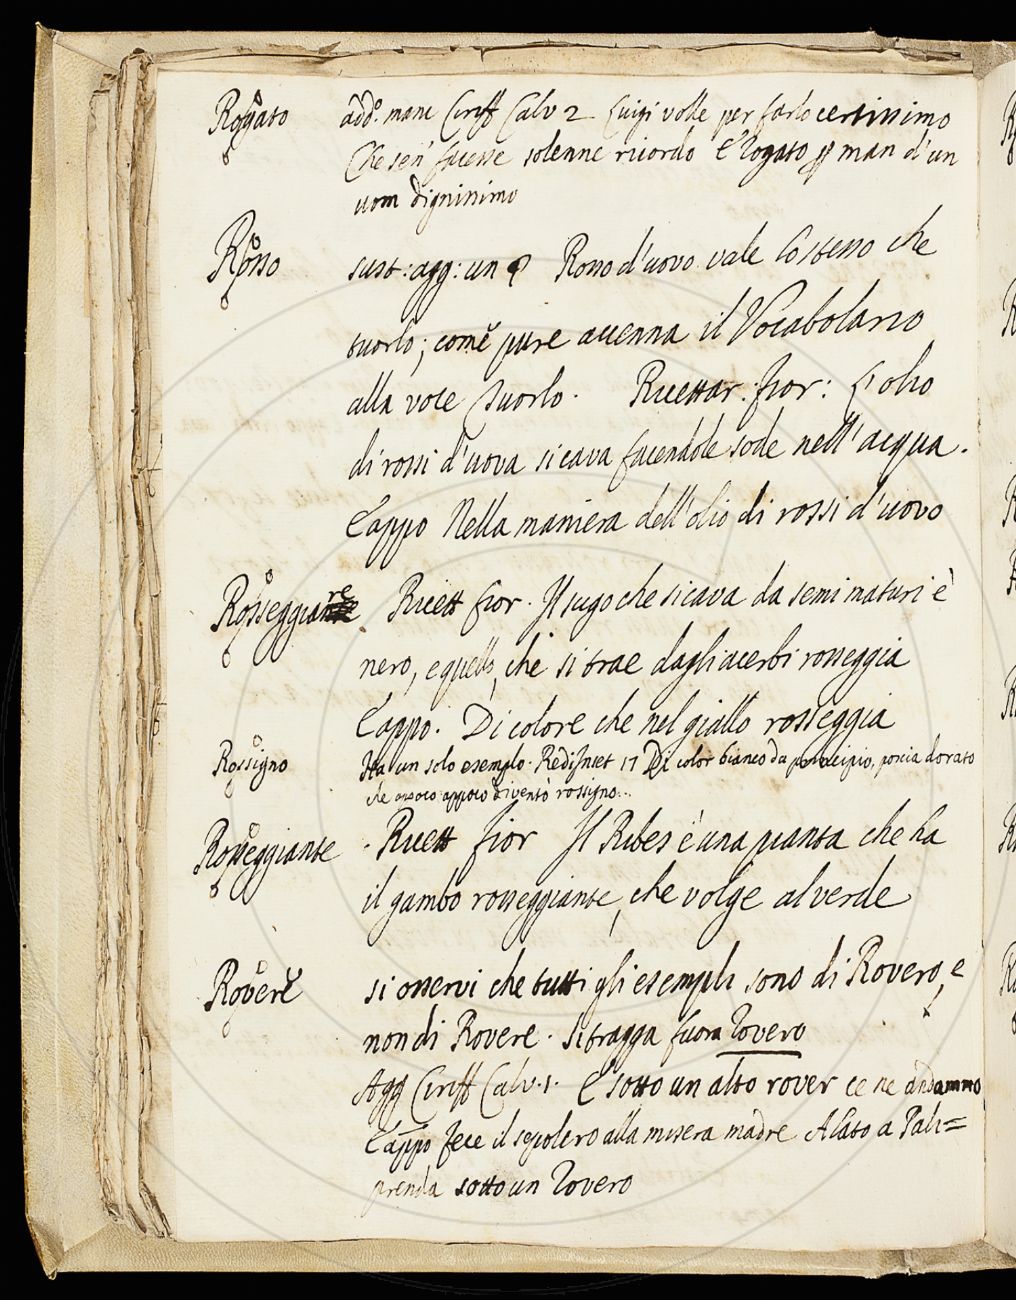 Rogato add.o mane Ciriff Calv 2 Luigi volle per farlo certissimo
Che sen' facesse solenne ricordo E rogato p man d'un
uom dignissimo
Rosso sust: agg: un § Rosso d'uovo vale lo stesso che
tuorlo; come pure accenna il Vocabolario
alla voce Tuorlo. Ricettar: fior: L'olio
di rossi d'uova si cava facendole sode nell'acqua.
E appo Nella maniera dell'olio di rossi d'uovo
Rosseggiare Ricett fior. Il sugo che si cava da semi maturi è
nero, e quello, che si trae dagli acerbi rosseggia
E appo. Di colore che nel giallo rosseggia
Rossigno Ha un solo esempio. Red Inset 17 Di color bianco da principio, poscia dorato
che appoco appoco diventò rossigno..
Rosseggiante . Ricett fior Il Ribes è una pianta che ha
il gambo rosseggiante, che volge al verde
Rovere si osservi che tutti gli esempli sono di Rovero, e
non di Rovere. Si tragga fuora Rovero
Agg Ciriff Calv. 1. E sotto un alto rover ce ne andammo
E appo Fece il sepolcro alla misera madre Alato a Pali=
prenda sotto un Rovero